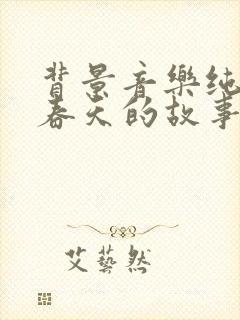 背景音樂纯
春天的故事
艾藝然